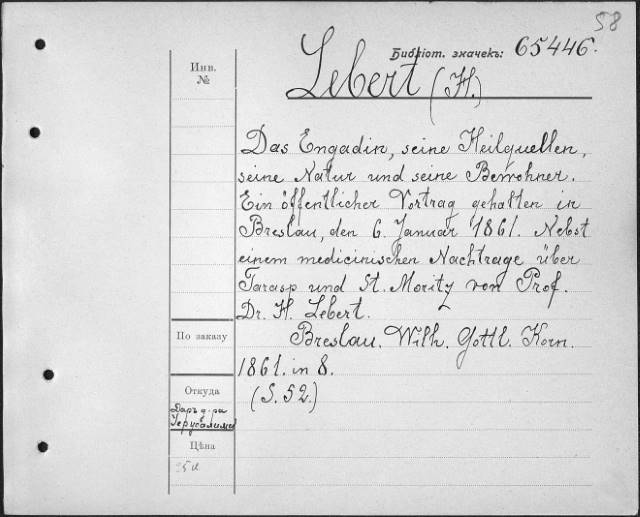 58
Библіот. значекъ: 65446.
Lebert (H.)
Инв.
№
Das Engadin, seine Heilquellen,
seine Natur und seine Bewohner.
Ein öffentlicher Vortrag gehalten in
Breslau, den 6. Januar 1861. Nebst
einem medicinischen Nachtrage über
Tarasp und St. Moritz von Prof.
Dr. H. Lebert.
По заказу
Breslau. Wilh. Gottl. Korn.
1861. in 8.
Откуда
(S. 52.)
Даръ д-ра
Цѣна